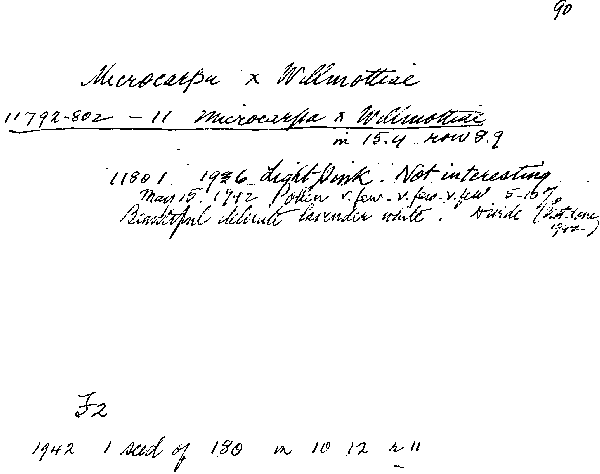 90
Microcarpa x Willmottiae
11792-802 - 11 Microcarpa x Willmottiae
in 15.4 row 8.9
11801 1936 Light Pink. Not interesting
May 15. 1942 Pollen v. few - v. few - v. few 5-10%
Beautiful delicate lavender white. Divide (
1942)
F2
1942 1 seed of 180 in 10 12 r 11